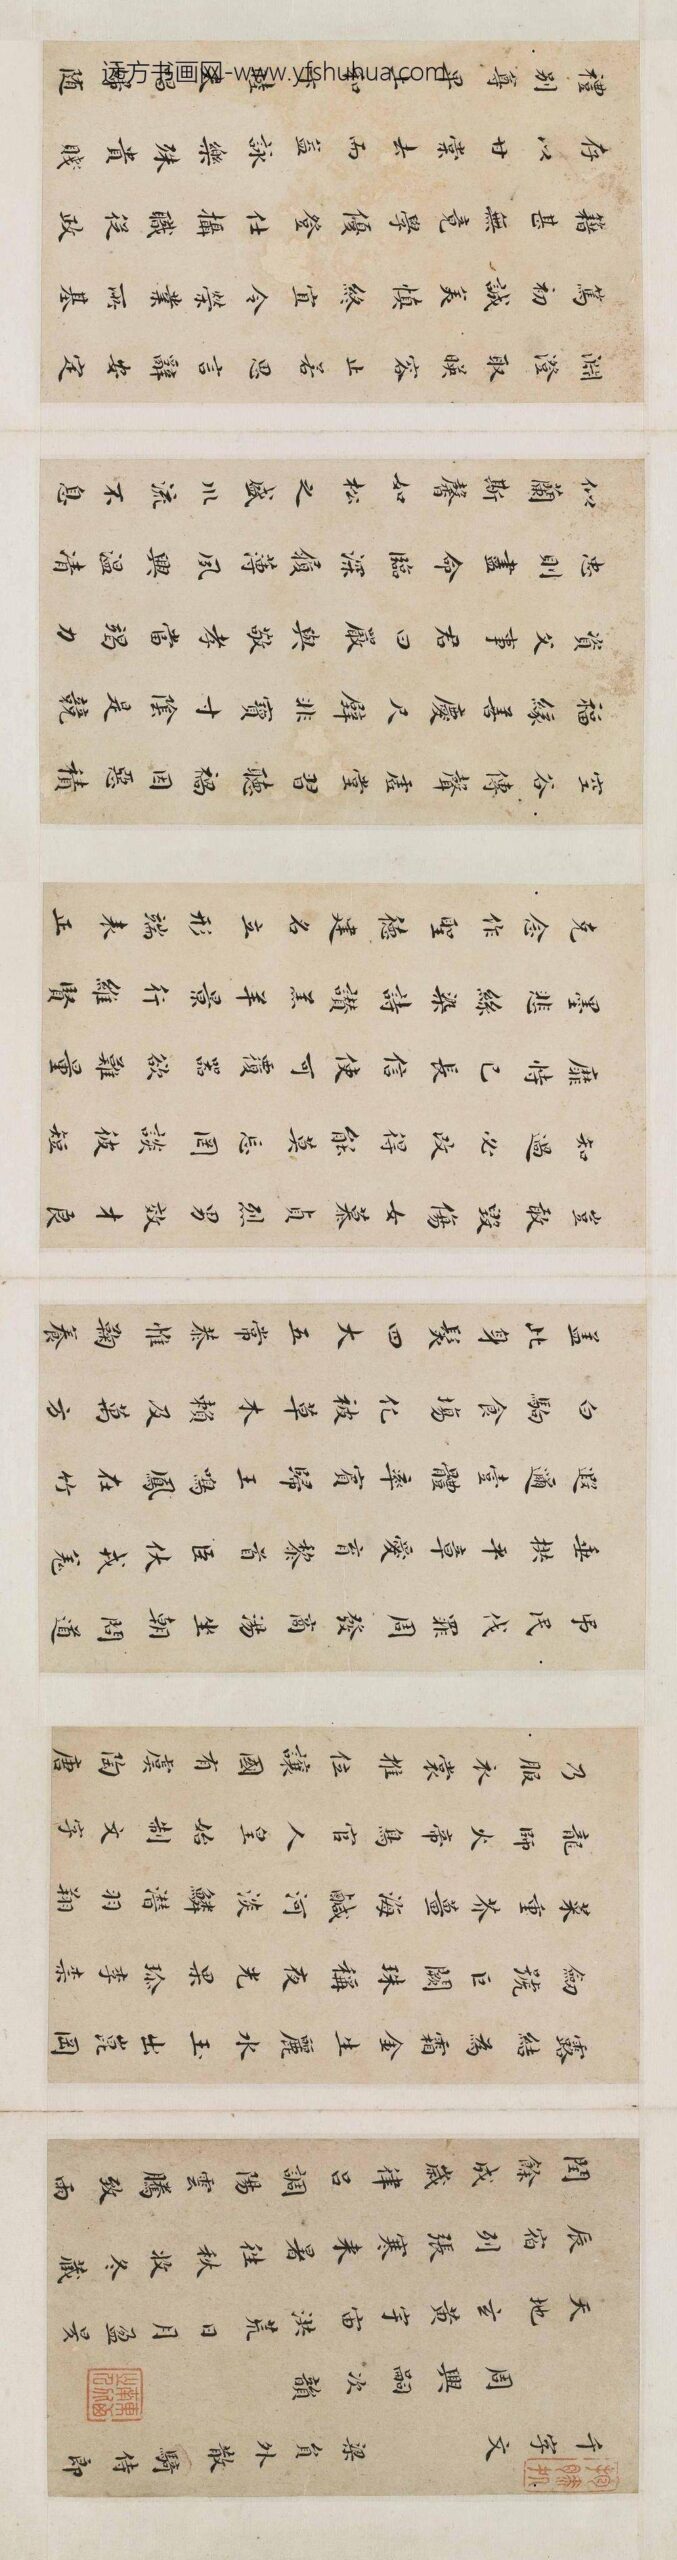 千字文 梁員外散騎侍郎
周興嗣次韻
天地玄黃宇宙洪荒日月盈昃
辰宿列張寒來暑往秋收冬藏
閏餘成歲律呂調陽雲騰致雨
露結為霜金生麗水玉出崑岡
劍號巨闕珠稱夜光果珍李柰
菜重芥薑海鹹河淡鱗潛羽翔
龍師火帝鳥官人皇始制文字
乃服衣裳推位讓國有虞陶唐
弔民伐罪周發商湯坐朝問道
垂拱平章愛育黎首臣伏戎羌
遐邇壹體率賓歸王鳴鳳在竹
白駒食場化被草木賴及萬方
蓋此身髮四大五常恭惟鞠養
豈敢毀傷女慕貞烈男效才良
知過必改得能莫忘罔談彼短
靡恃己長信使可覆器欲難量
墨悲絲染詩讚羔羊景行維賢
克念作聖德建名立形端表正
空谷傳聲虛堂習聽禍因惡積
福緣善慶尺璧非寶寸陰是競
資父事君曰嚴與敬孝當竭力
忠則盡命臨深履薄夙興溫清
似蘭斯馨如松之盛川流不息
淵澄取暎容止若思言辭安定
篤初誠美慎終宜令榮業所基
籍甚無竟學優登仕攝職從政
存以甘棠去而益詠樂殊貴賤
禮別尊卑上和下睦夫唱婦隨
远方书画网-www.yfshuhua.com